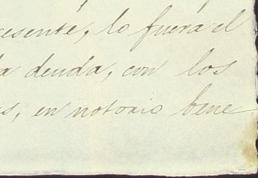 resente, lo fuera el
a deuda, con los
s, en notorio bene